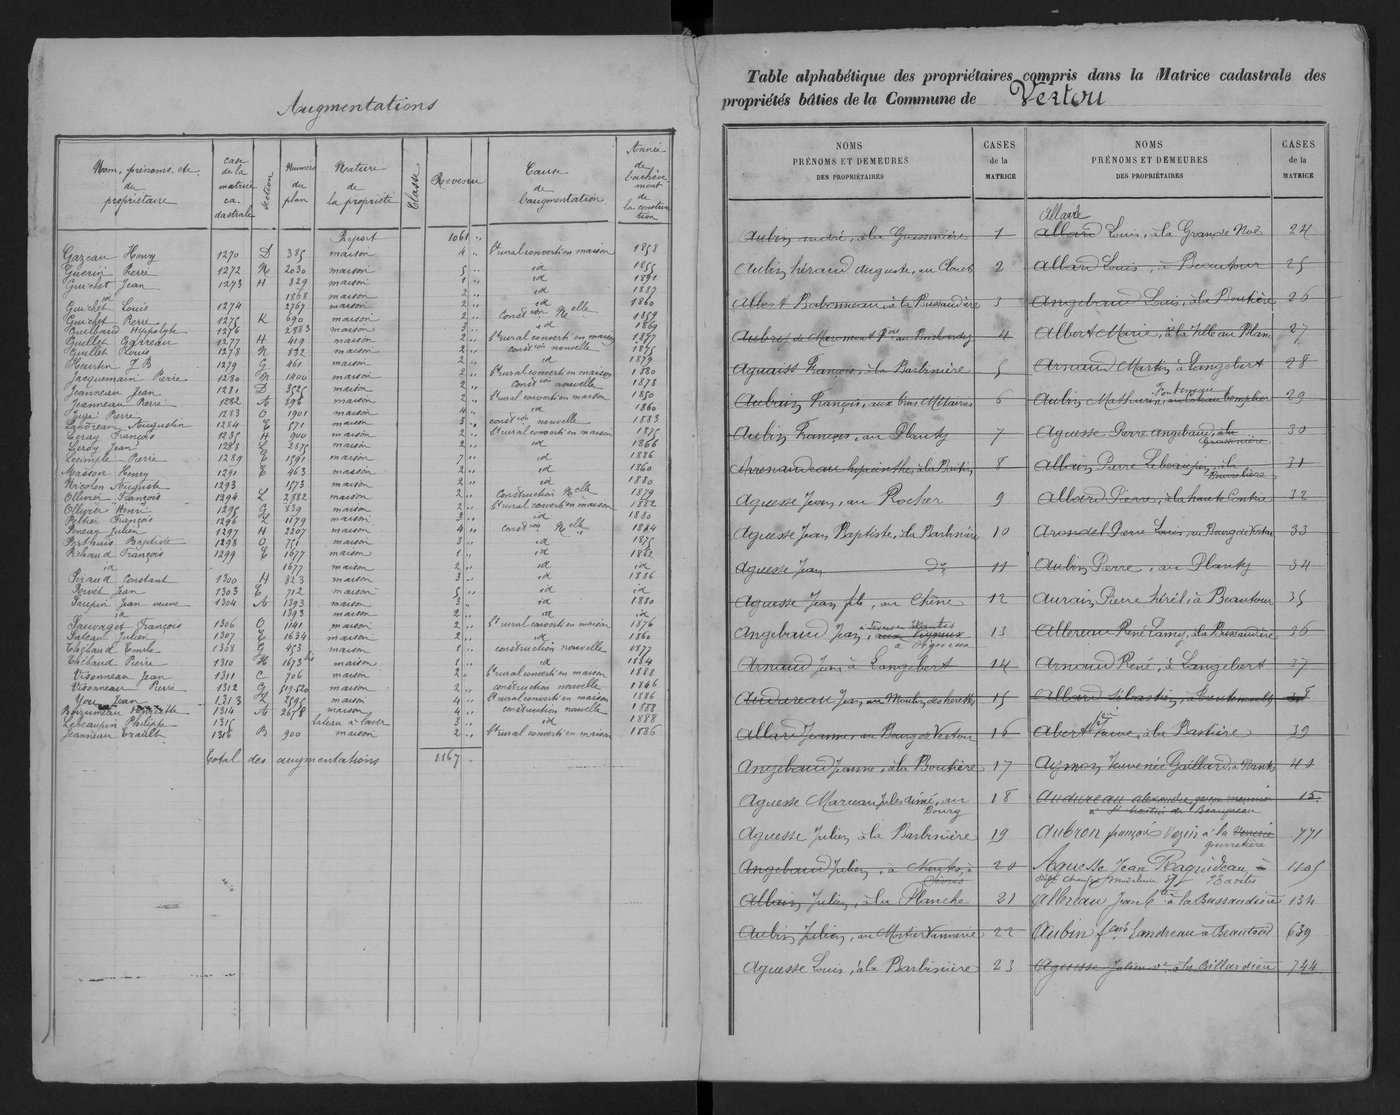 Augmentations
Nom, prénoms, etc du propriétaire | case de la matrice cadastrale | Section | Numéro du plan | Nature de la propriété | Classe | Revenu | Cause de l'augmentation | Année de l'achèvement de la construction
Report 1061 "
Gazeau Henry 1270 D 385 maison 4 " Bt rural converti en maison 1858
Guérin Pierre 1272 N 2030 maison 5 " id 1855
Guichet Jean 1273 H 329 maison 1 " id 1881
id 1868 maison 2 " id 1887
Guichet Louis 1274 2767 maison 2 " id 1860
Guichet Pierre 1275 K 690 maison 2 " Constion Nelle 1859
Guilbaud Hippolyte 1276 2883 maison 3 " id 1869
Guillet Garreau 1277 H 419 maison 2 " Bt rural converti en maison 1877
Guillet Louis 1278 N 832 maison 2 " Constion nouvelle 1875
Heurtin J B 1279 G 461 maison 2 " id 1879
Jacquemain Pierre 1280 N 1400 maison 2 " Bt rural converti en maison 1880
Jeanneau Jean 1281 D 3525 maison 2 " Constion nouvelle 1878
Jeanneau Pierre 1282 A 896 maison 2 " Bt rural converti en maison 1850
Juge Pierre 1283 O 1901 maison 4 " id 1860
Landreau Augustin 1284 E 571 maison 3 " constion nouvelle 1883
Leray François 1285 H 900 maison 2 " Bt rural converti en maison 1875
Leroy Jean 1288 L 2875 maison 2 " id 1866
Lesimple Pierre 1289 E 1591 maison 7 " id 1886
Masson Henry 1291 E 463 maison 2 " id 1860
Nicolon Auguste 1293 1573 maison 2 " id 1880
Ollivier François 1294 L 2882 maison 2 " Construction Nelle 1879
Ollivier Henri 1295 G 839 maison 2 " Bt rural converti en maison 1882
Peltier François 1296 L 1879 maison 3 " id 1880
Peneau Julien 1297 H 2207 maison 4 " constion Nelle 1884
Perthuis Baptiste 1298 O 751 maison 3 " id 1875
Ribaud François 1299 E 1677 maison 1 " id 1862
id 1677 maison 2 " id id
Piraud Constant 1300 H 323 maison 3 " id 1886
Rivet Jean 1303 E 712 maison 5 " id id
Saupin Jean veuve 1304 A 1393 maison 3 " id 1880
id 1393 maison 2 " id id
Sauvaget François 1306 O 1141 maison 2 " Bt rural converti en maison 1876
Sateau Julien 1307 E 1634 maison 2 " id 1860
Thébaud Emile 1308 G 453 maison 1 " construction nouvelle 1877
Thébaud Pierre 1310 H 1673 bis maison 1 " id 1884
Visonneau Jean 1311 C 706 maison 2 " Bt rural converti en maison 1888
Visonneau Pierre 1312 G 519.520 maison 2 " construction nouvelle 1846
You Jean 1313 L 2595 maison 4 " Bt rural converti en maison 1886
1314 A 2658 maison 4 " construction nouvelle 1888
Lebeaupin Philippe 1315 bateau à laver 3 " id 1888
Jeanneau Erault 1316 B 900 maison 2 " Bt rural converti en maison 1886
Total des augmentations 1167 "
Table alphabétique des propriétaires compris dans la Matrice cadastrale des
propriétés bâties de la Commune de Vertou
NOMS PRÉNOMS ET DEMEURES DES PROPRIÉTAIRES | CASES de la MATRICE
Aubin andré, à la Grassinière 1
Aubin héraud Auguste, au Clouet 2
Albert Babonneau à la Bussaudière 3
Aubry de Maromont Pre au Portereau 4
Aguaisse François, à la Barbinière 5
Aubrain François, aux Gras Métairies 6
Aubin François, au Planty 7
Arrenaudeau hyacinthe, à la Bretin 8
Aguesse Jean, au Rocher 9
Aguesse Jean Baptiste, à la Barbinière 10
Aguesse Jean do 11
Aguesse Jean fils, au Chêne 12
Angebaud Jean, 13
Arnaud Jean à Langebert 14
Audureau Jean, au Moulin des herses 15
Allard Jeanne, au Bourg de Vertou 16
Angebaud Jeanne, à la Boutière 17
Aguesse Moreau Jules aimé, au Bourg 18
Aguesse Julien à la Barbinière 19
Angebaud Julien, à Nantes, 20
Albain Julien, à la Planche 21
Aubin Julien, au Mortier Vannerie 22
Aguesse Louis, à la Barbinière 23
NOMS PRÉNOMS ET DEMEURES DES PROPRIÉTAIRES | CASES de la MATRICE
Allaire
Allard Louis, à la Grande Noë 24
Allard Louis, à Beautour 25
Angebaud Louis, à la Boutière 26
Albert Marie, à la Ville au Blanc 27
Arnaud Martin à Langebert 28
Aubin Mathurin, au Coteau Templier 29
Aguesse Pierre Angebaud, à la Grassinière 30
Albain Pierre Lebeaupin, à la 31
Allard Pierre, à la haute Contrie 32
Arondel Pierre Louis, au Bourg de Vertou 33
Aubin Pierre, au Planty 34
Aurain Pierre hérel, à Beautour 35
Allereau René Lamy, à la Bussaudière 36
Arnaud René, à Langebert 37
Allard Sébastien, à 38
Albert Veuve, à la Bastière 39
Aymon Veuve née Gaillard, à Nantes 40
Audureau alexandre, garçon meunier 15
à St Martin de Beaupreau
Aubron françois Vezin à la Venerie 771
gourretière
Aguesse Jean Raguideau, à 1105
Allereau Jean Bte à la Bussaudière 134
Aubin fçois Landreau à Beautour 639
Aguesse Julien à la Billardière 744